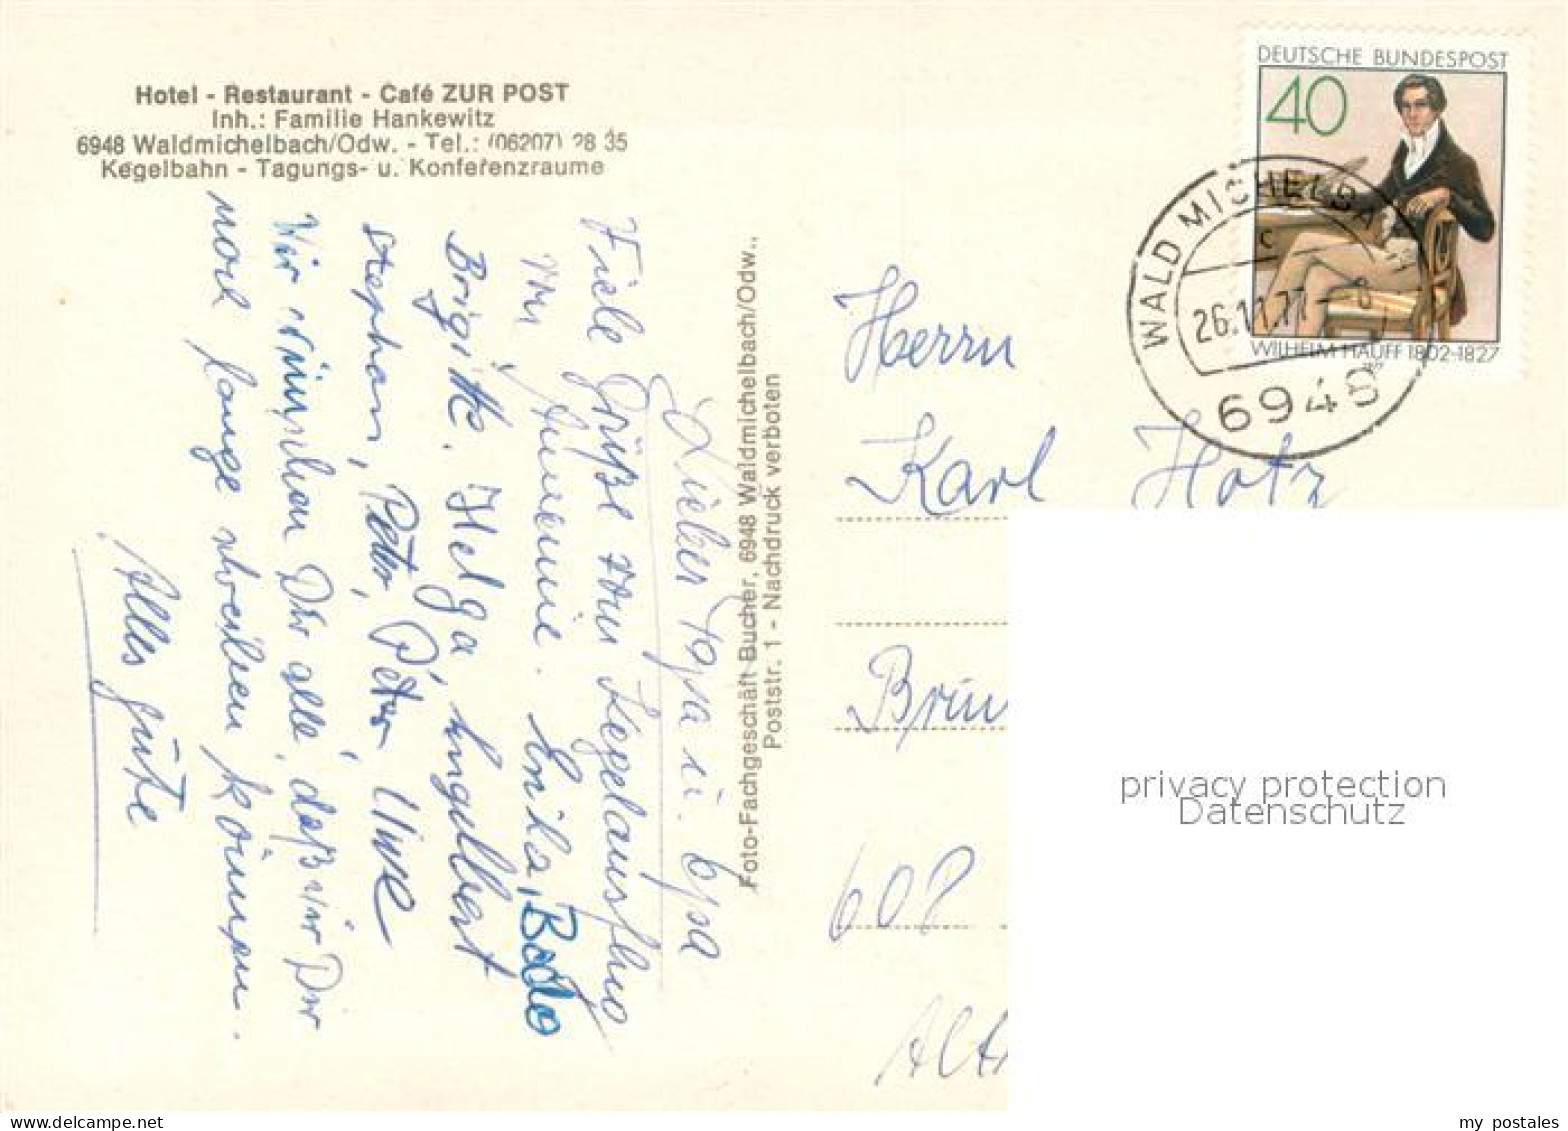 Hotel - Restaurant - Café ZUR POST
Inh.: Familie Hankewitz
6948 Waldmichelbach/Odw. - Tel.: (06207) 28 35
Kegelbahn - Tagungs- u. Konferenzraume
Lieber Opa u. Opa
Viele Grüße vom Kegelausflug
Annemie. Erika, Bodo
Brigitte. Helga, Engelbert
Stephan, Peter, Peter Uwe
Wir wünschen Dir alle, daß wir Dir
noch lange
kommen.
Alles gute
Foto-Fachgeschäft Bucher, 6948 Waldmichelbach/Odw.,
Poststr. 1 - Nachdruck verboten
DEUTSCHE BUNDESPOST
40
WILHELM HAUFF 1802-1827
WALD MICHELBA
c
26.11.77
6948
Herrn
Karl Hotz
608
privacy protection
Datenschutz
my postales